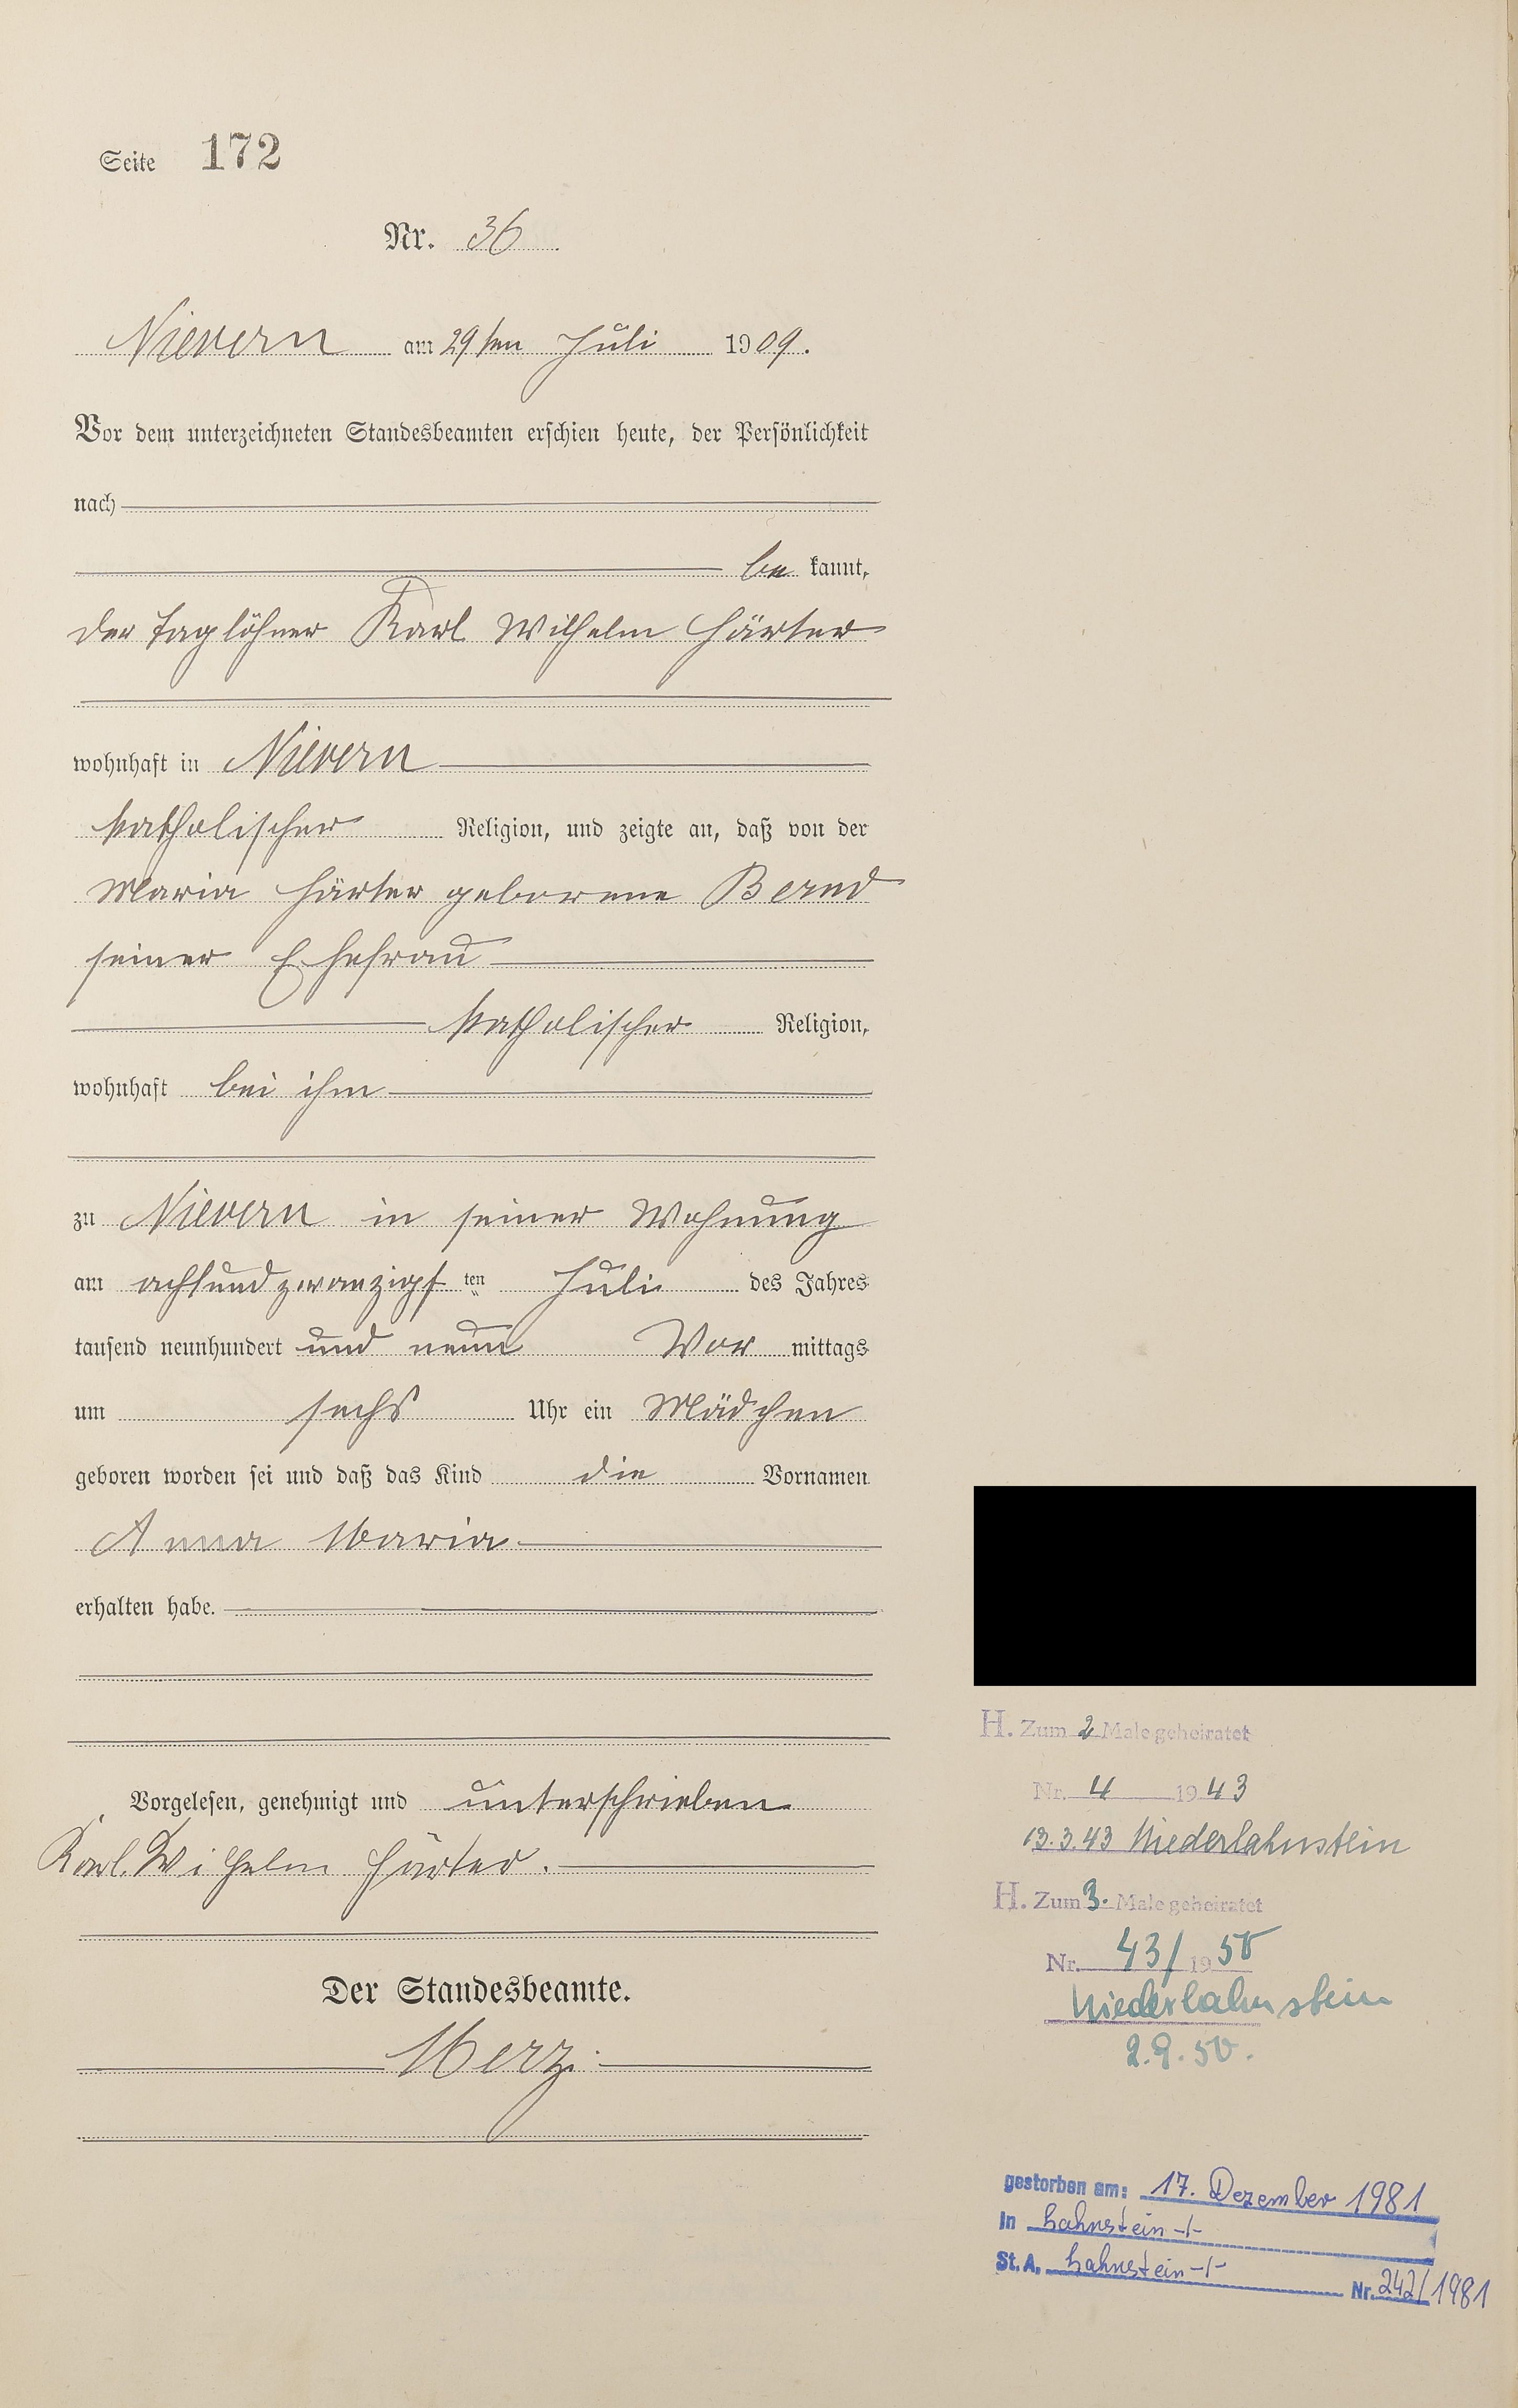 Seite 172
Nr. 36
Nievern am 29ten Juli 1909.
Vor dem unterzeichneten Standesbeamten erschien heute, der Persönlichkeit
nach
be kannt,
der Taglöhner Karl Wilhelm Härter
wohnhaft in Nievern
katholischer Religion, und zeigte an, daß von der
Maria Härter geborene Bernd
seiner Ehefrau
katholischer Religion,
wohnhaft bei ihm
zu Nievern in seiner Wohnung
am achtundzwanzigsten Juli des Jahres
tausend neunhundert und neun Vor mittags
um sechs Uhr ein Mädchen
geboren worden sei und daß das Kind die Vornamen
Anna Maria
erhalten habe.
Vorgelesen, genehmigt und unterschrieben
Karl Wilhelm Härter.
Der Standesbeamte.
Merz
H. Zum 2 Male geheiratet
Nr. 4 1943
13.3.43 Niederlahnstein
H. Zum 3. Male geheiratet
Nr. 43/1950
Niederlahnstein
2.9.50.
gestorben am: 17. Dezember 1981
In Lahnstein -/-
St. A. Lahnstein -/- Nr. 242/1981